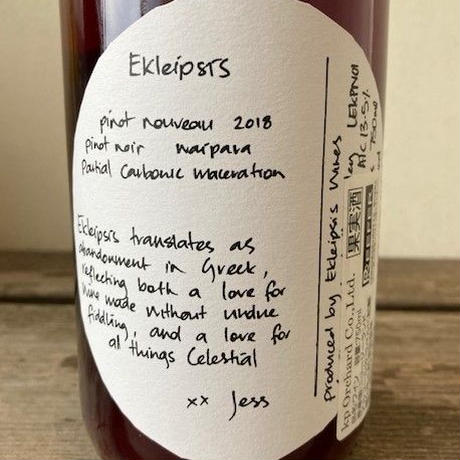 Ekleipsis
pinot nouveau 2018
pinot noir waipara
Partial Carbonic maceration
Ekleipsis translates as
abandonment in Greek,
reflecting both a love for
wine made without undue
fiddling, and a love for
all things Celestial
xx Jess
produced by Ekleipsis wines
LEKPN01
Alc 13.5%
750ml
果実酒
kp Orchard Co.,Ltd.